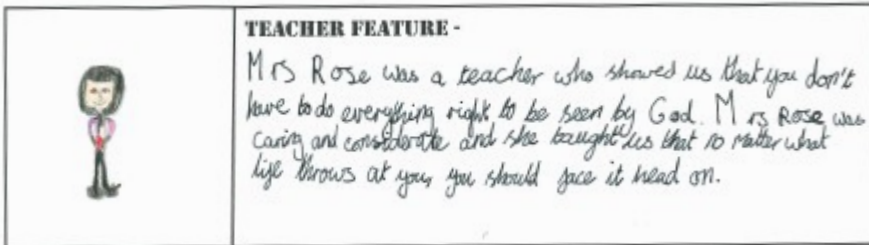 TEACHER FEATURE -
Mrs Rose was a teacher who showed us that you don't
have to do everything right to be seen by God. Mrs Rose was
caring and considerate and she taught us that no matter what
life throws at you, you should face it head on.